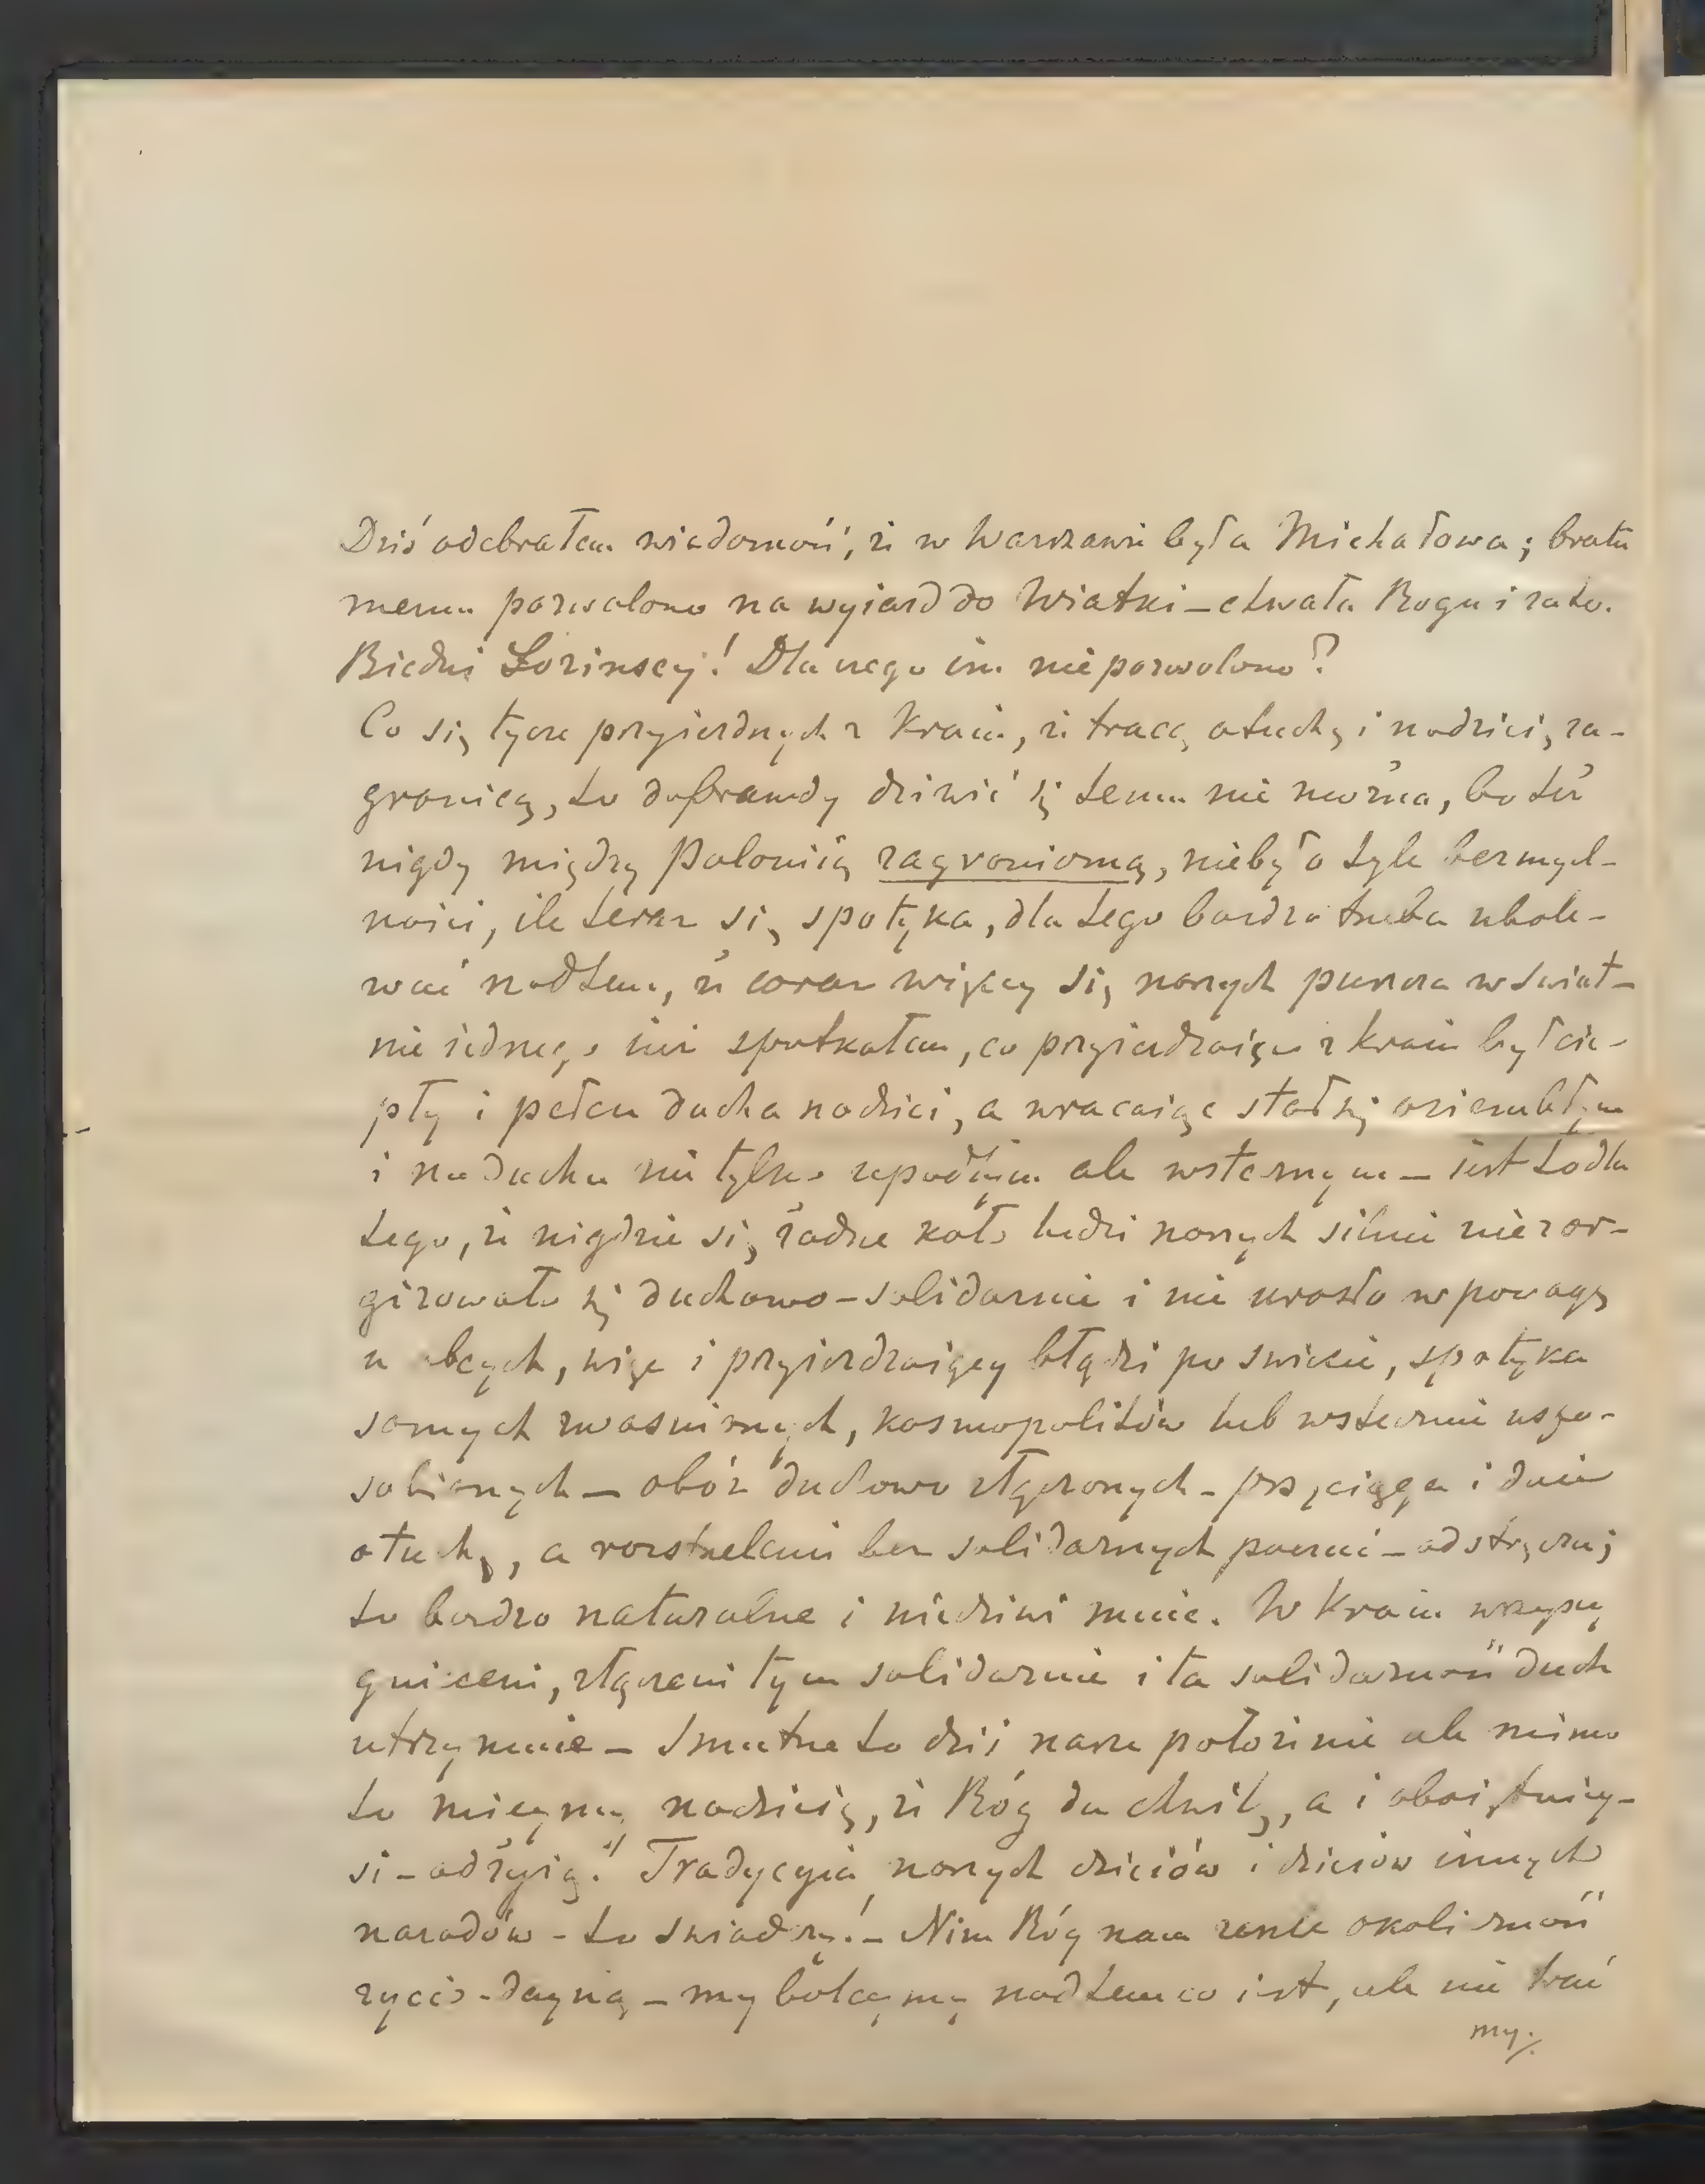 Dziś odebrałem wiadomość, że w Warszawie była Michałowa; bratu
memu pozwolono na wyjazd do Wiatki – chwała Bogu i za to.
Biedni Łozinscy! Dla czego im nie pozwolono?
Co się tycze przyjezdnych z Kraiu, że tracą otuchę i nadzieię za-
granicą, to doprawdy dziwić się temu nie można, bo też
nigdy między Polonią zagraniczną, niebyło tyle bezmyśl-
ności, ile teraz się spotyka, dla tego bardzo trzeba ubole-
wać nad tem, że coraz więcey się naszych puszcza w świat –
nie iednego iuż spotkałem, co przyieżdzaiąc z kraiu był cie-
pły i pełen ducha nadziei, a wracaiąc stał się oziembłym
i na duchu nie tylko upadłym ale wstecznym – iest to dla
tego, że nigdzie się żadne koło ludzi naszych silnie niezor-
gizowało się duchowo-solidarnie i nie urosło w powagę
u obcych, więc i przyieżdzaiący błądzi po swiecie, spotyka
samych zwasnionych, kosmopolitów lub wstecznie uspo-
sobionych – obóz duchowo złączonych – przyciąga i daie
otuchę, a rozstrzeleni bez solidarnych poczuć – odstręczai;
to bardzo naturalne i niedziwi mnie. W Kraiu wszyscy
gnieceni, złączeni tym solidarnie i ta solidarność duch
utrzymuie – Smutne to dziś nasze położenie ale mimo
to mieymy nadzieię, że Bóg da chwilę, a i oboiętniey-
si – odżyią! Tradycyia naszych dzieiów i dzieiów innych
narodów – to swiadczy! – Nim Bóg nam zeszle okoliczność
życio-dayną – my bolejmy nad tem co iest, ale nie trać
my.